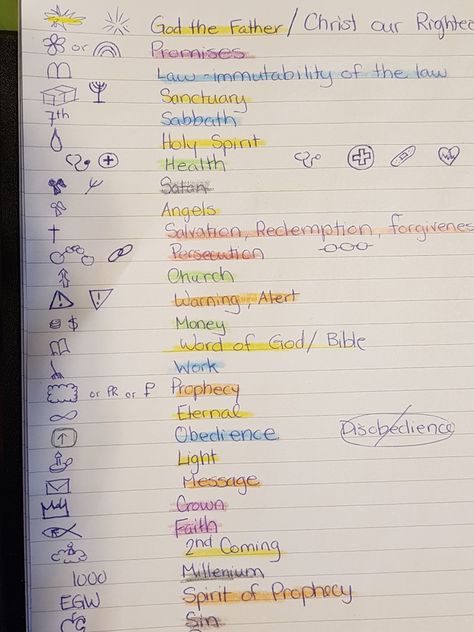 God the Father / Christ our Righteo
or Promises
Law - immutability of the law
Sanctuary
7th Sabbath
Holy Spirit
Health
Satan
Angels
Salvation, Redemption, forgivenes
Persecution
Church
! ! Warning, Alert
$ Money
Word of God / Bible
Work
or PR or P Prophecy
Eternal
Obedience Disobedience
Light
Message
Crown
Faith
2nd Coming
1000 Millenium
EGW Spirit of Prophecy
Sin